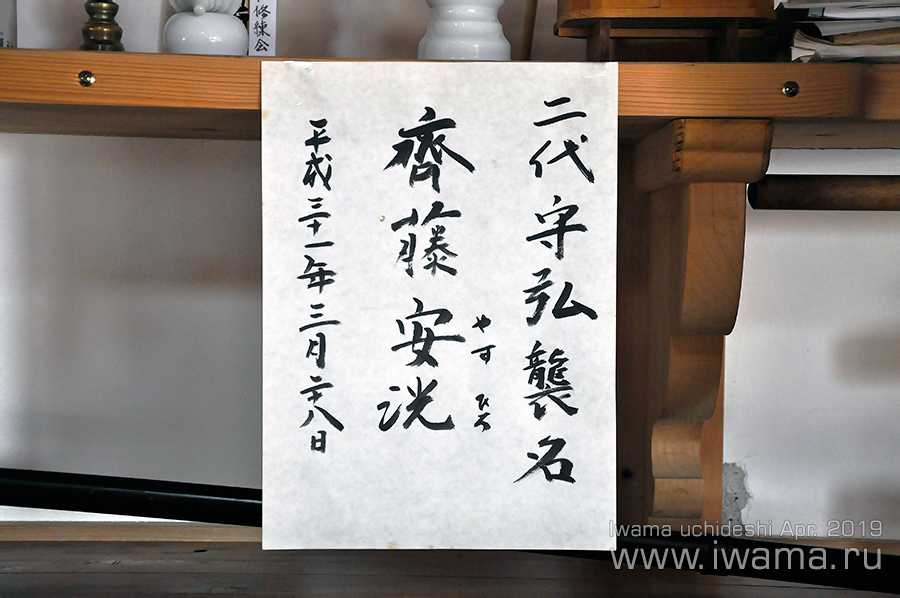 修練会
二代守弘襲名
齊藤安洸
やす ひろ
平成三十一年三月二十八日
Iwama uchideshi Apr. 2019
www.iwama.ru